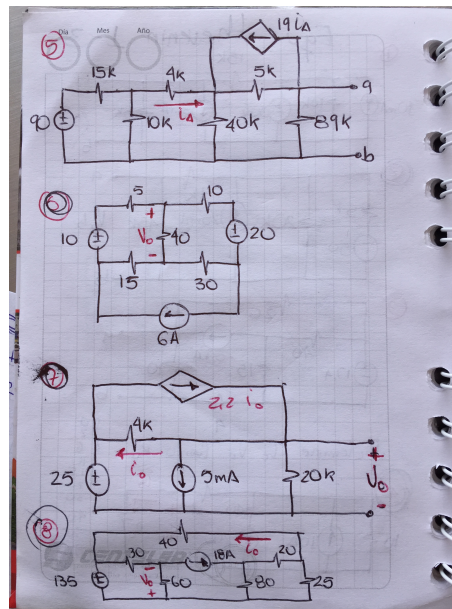 Día Mes Año
5
19 i∆
15k 4k 5k
a
90 10k i∆ 40k 89k
b
6
5 10
+
10 Vo 40 20
-
15 30
6A
7
2,2 io
4k
io
+
25 5mA 20k Vo
-
8
40 io
30 18A 20
-
135 Vo 60 80 25
+